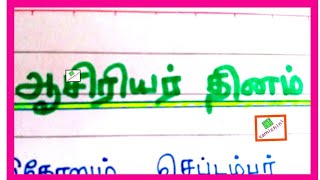 ஆசிரியர் தினம்
செப்டம்பர்